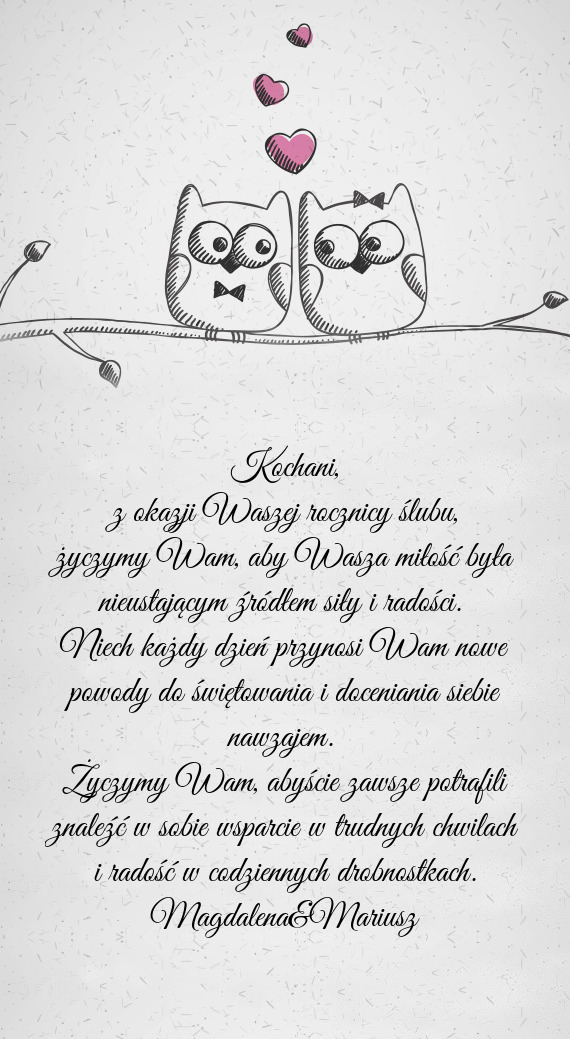 Kochani,
z okazji Waszej rocznicy ślubu,
życzymy Wam, aby Wasza miłość była
nieustającym źródłem siły i radości.
Niech każdy dzień przynosi Wam nowe
powody do świętowania i doceniania siebie
nawzajem.
Życzymy Wam, abyście zawsze potrafili
znaleźć w sobie wsparcie w trudnych chwilach
i radość w codziennych drobnostkach.
Magdalena&Mariusz